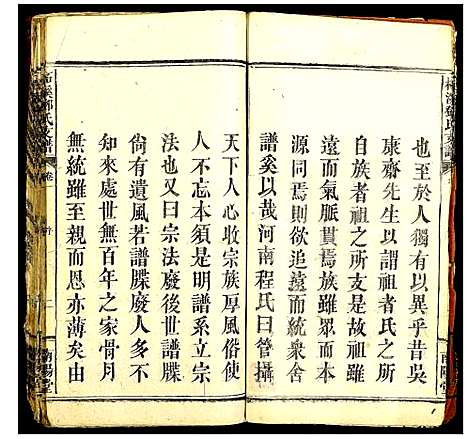 也至於人獨有以異乎昔吳
康齋先生以謂祖者氏之所
自族者祖之所分支是故祖
遠而氣脈貫焉族雖眾而
源同焉欲追遠而統衆舍
譜奚以哉河南程氏曰管攝
天下人心收宗族厚風俗使
人不忘本須是明譜系立宗
法也又曰宗法廢後世譜牒
尚有遺風若譜牒廢人多不
知來處世無百年之家骨月
無統雖至親而恩亦薄矣由
氏支譜
卷一
南陽堂